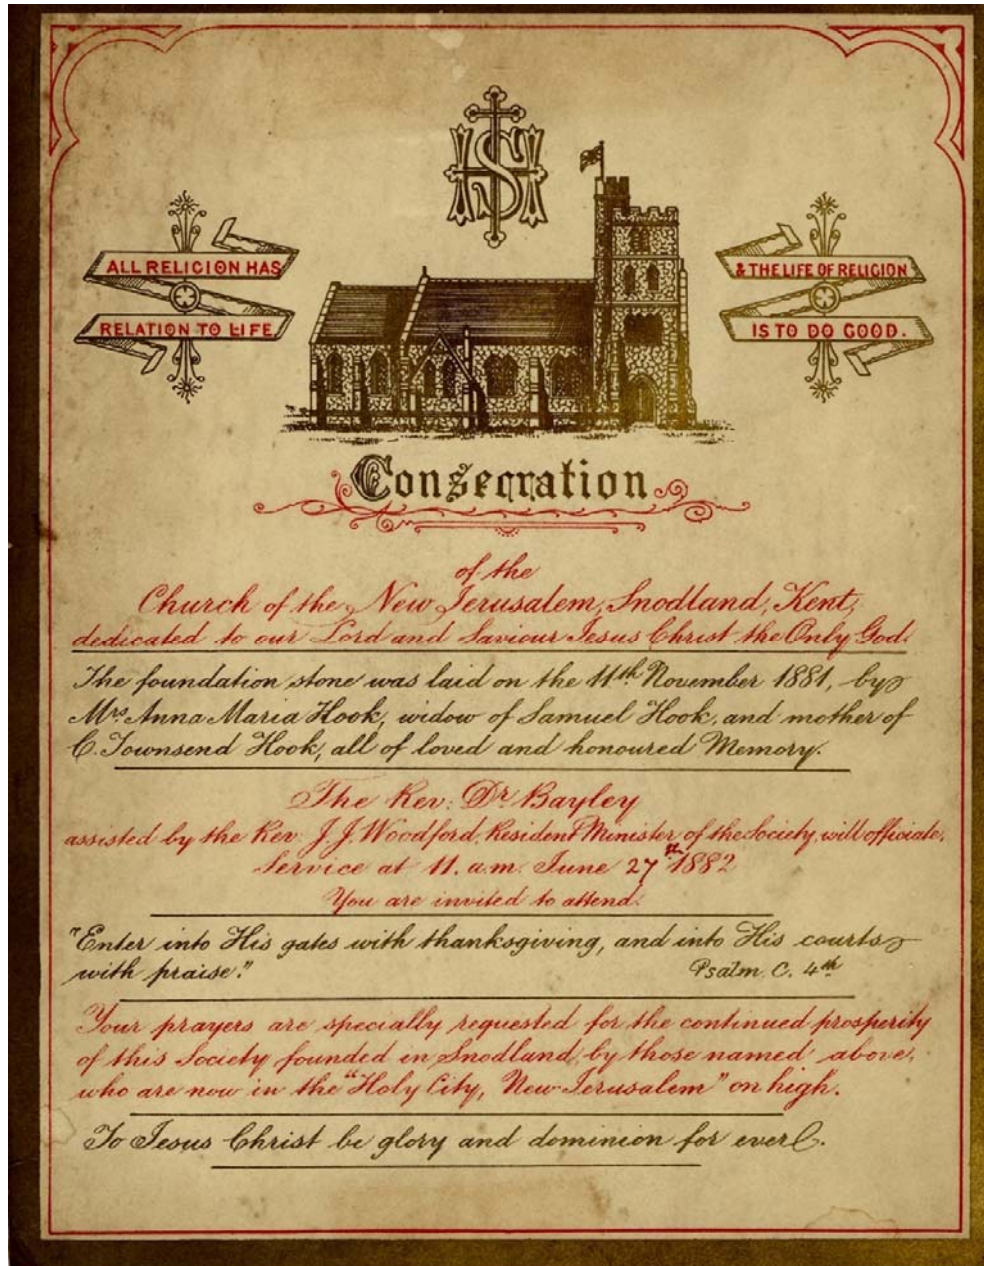 IHS
ALL RELIGION HAS
RELATION TO LIFE
& THE LIFE OF RELIGION
IS TO DO GOOD.
Consecration
of the
Church of the New Jerusalem, Snodland, Kent,
dedicated to our Lord and Saviour Jesus Christ the Only God.
The foundation stone was laid on the 11th November 1881, by
Mrs Anna Maria Hook, widow of Samuel Hook, and mother of
C. Townsend Hook, all of loved and honoured Memory.
The Rev: Dr Bayley
assisted by the Rev: J.J. Woodford, Resident Minister of the Society, will officiate.
Service at 11. a.m. June 27th 1882
You are invited to attend.
"Enter into His gates with thanksgiving, and into His courts
with praise." Psalm. C. 4th
Your prayers are specially requested for the continued prosperity
of this Society founded in Snodland, by those named above,
who are now in the "Holy City, New Jerusalem" on high.
To Jesus Christ be glory and dominion for ever.